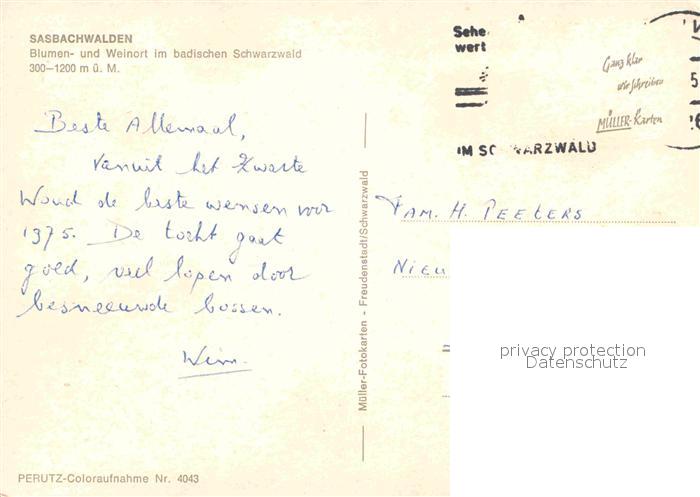 SASBACHWALDEN
Blumen- und Weinort im badischen Schwarzwald
300–1200 m ü. M.
Sehe
wert
Ganz klar
wir schreiben
MÜLLER-Karten
IM SC WARZWALD
Beste Allemaal,
Vanuit het Zwarte
Woud de beste wensen voor
1975. De tocht gaat
goed, veel lopen door
besneeuwde bossen.
Wim.
FAM. H. PEETERS
NIEU
Müller-Fotokarten - Freudenstadt/Schwarzwald
privacy protection
Datenschutz
PERUTZ-Coloraufnahme Nr. 4043